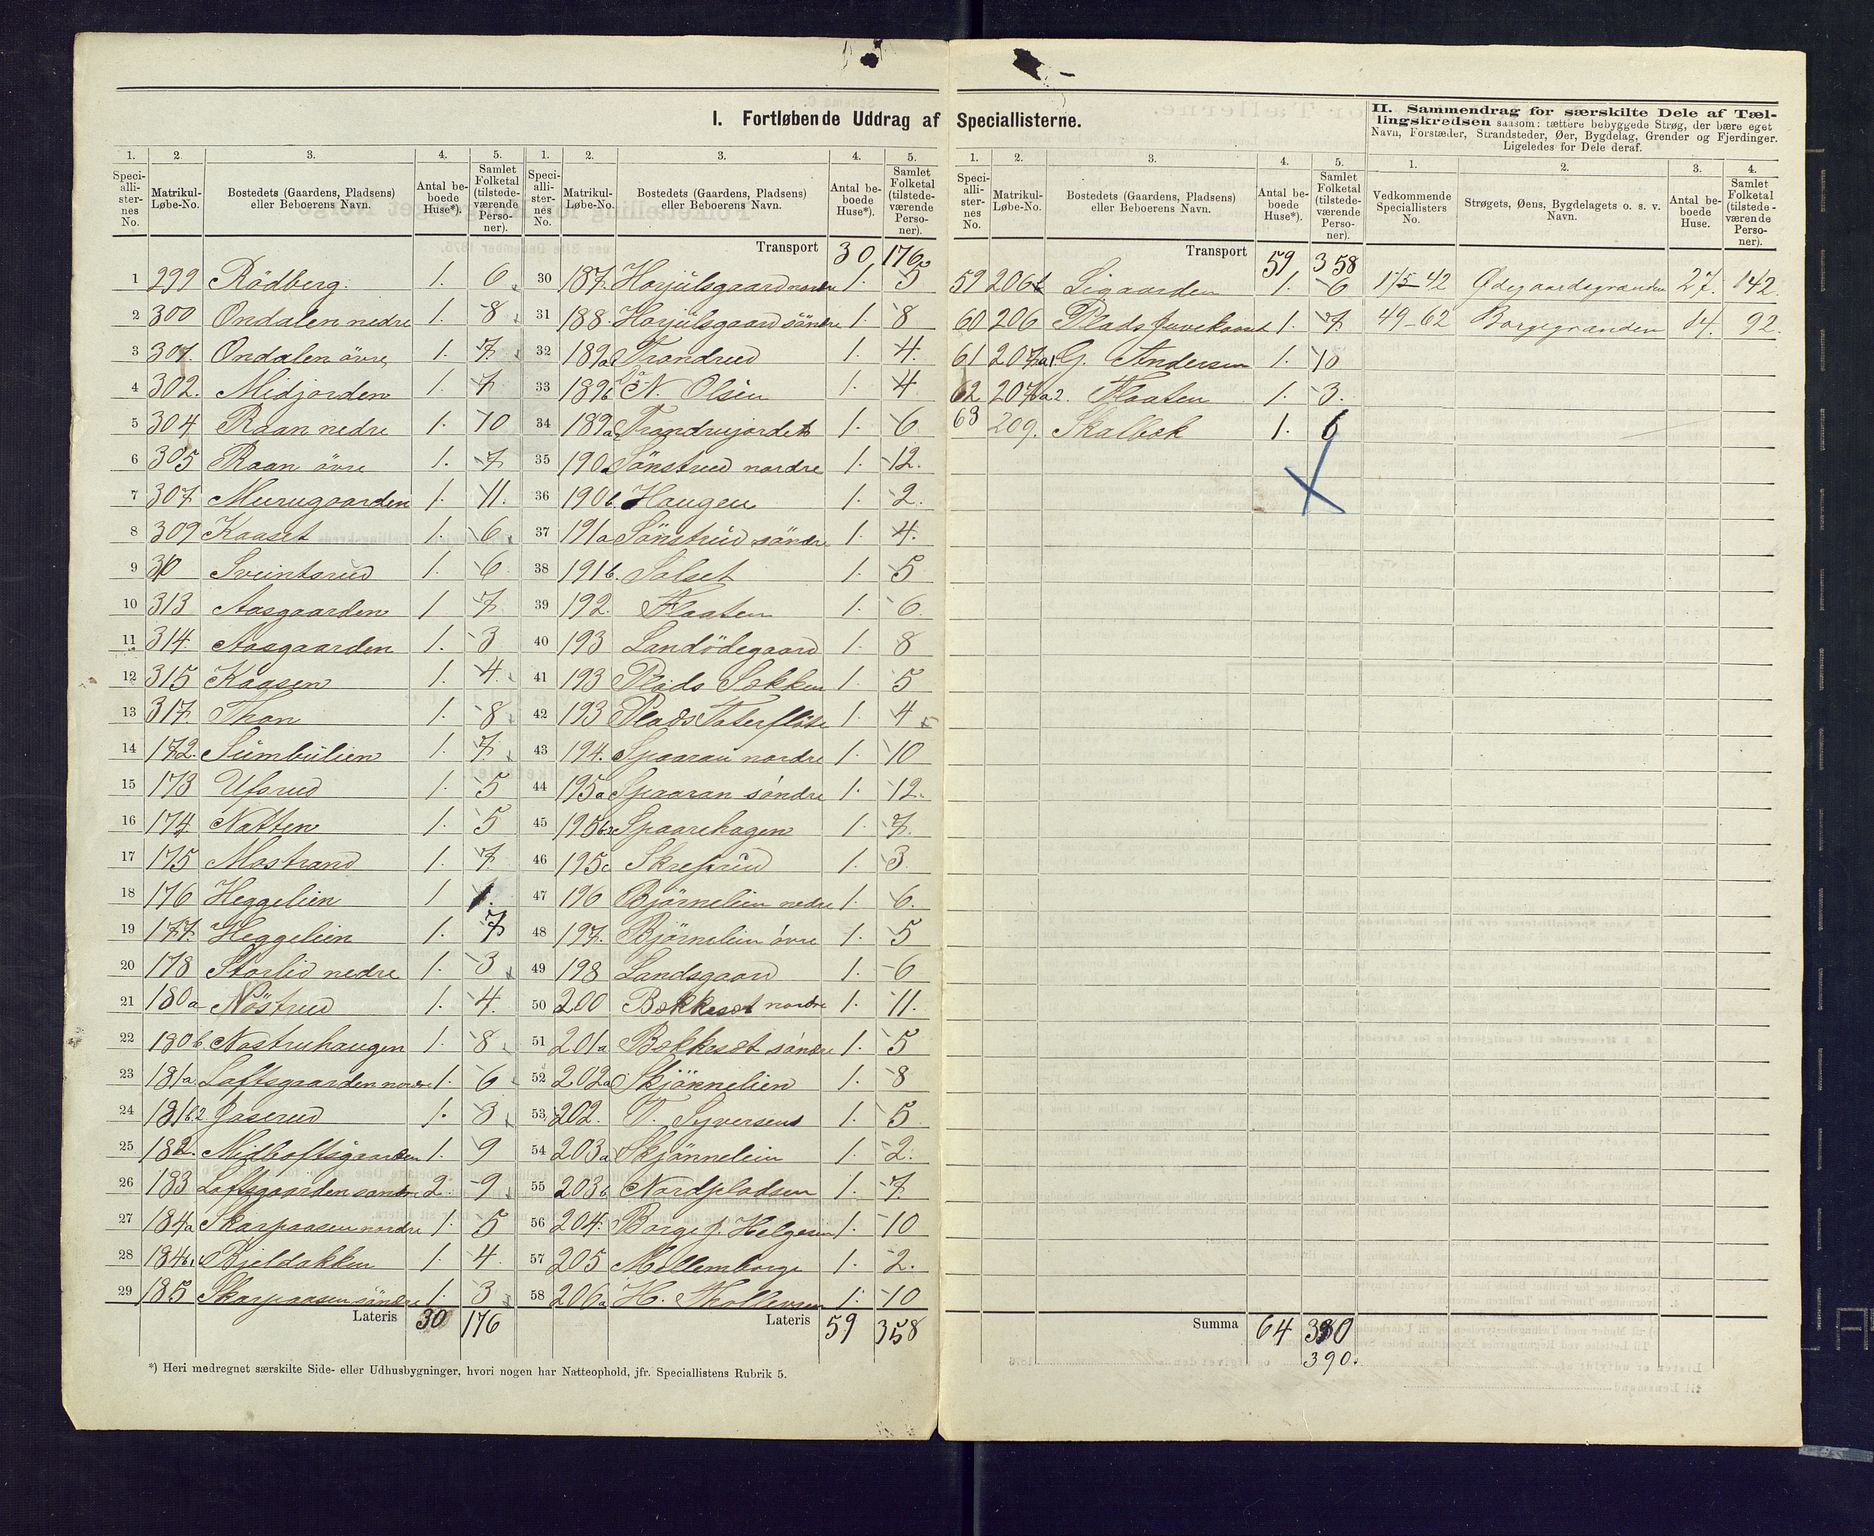 I. Fortløbende Uddrag af Speciallisterne.
II. Sammendrag for særskilte Dele af Tællingskredsen saasom: tættere bebyggede Strøg, der bære eget
Navn, Forstæder, Strandsteder, Øer, Bygdelag, Grender og Fjerdinger.
Ligeledes for Dele deraf.
1. 2. 3. 4. 5.
Speciallisternes No. Matrikul-Løbe-No. Bostedets (Gaardens, Pladsens) eller Beboerens Navn. Antal beboede Huse*). Samlet Folketal (tilstedeværende Personer).
1 299 Rödberg. 1. 6
2 300 Ondalen nedre 1. 8
3 301 Ondalen övre 1. 7
4 302. Midjorden 1. 7
5 304 Raan nedre 1. 10
6 305 Raan övre 1. 7
7 307 Murugaarden 1. 11.
8 309 Kaaset 1. 6
9 310 Sveintsrud 1. 6
10 313 Aasgaarden 1 7
11 314. Aasgaarden 1. 3
12 315 Kaasen 1. 4
13 317 Thon 1. 8
14 172. Sumbulien 1. 7
15 173 Ufsrud 1. 5
16 174 Natten 1. 5
17 175 Mostrand 1. 7
18 176 Heggelien 1 1.
19 177. Heggelien 1. 7
20 178 Storlid nedre 1. 3
21 180a Nöstrud 1. 4.
22 180b Nöstruhaugen 1. 8
23 181a Loftsgaarden nordre 1. 6
24 181b2 Jaserud 1. 3
25 182. Midtloftsgaarden 1. 9
26 183 Loftsgaarden søndre 2. 9
27 184a Skarpaasen nordre 1. 5
28 184b1 Bjeldokken 1. 4
29 185 Skarpaasen söndre 1. 3
Lateris 30 176
1. 2. 3. 4. 5.
Speciallisternes No. Matrikul-Løbe-No. Bostedets (Gaardens, Pladsens) eller Beboerens Navn. Antal beboede Huse*). Samlet Folketal (tilstedeværende Personer).
Transport 30 176
30 187. Horjulsgaard nordre 1. 5
31 188. Horjulsgaard söndre 1. 8
32 189a Trondrud 1. 4.
33 189b N. Olsen 1. 4
34 189a Trondrujordet 1. 6
35 190a Sönstrud nordre 1. 12.
36 190b Haugen 1. 2.
37 191a Sönstrud söndre 1. 4.
38 191b. Solset 1. 5
39 192. Flaaten 1. 6.
40 193 Landödegaard 1. 8
41 193 Plads Sekken 1. 5
42 193 Plads Taterfløte 1. 4
43 194. Spaaran nordre 1. 10
44 195a Spaaran söndre 1. 12.
45 195b Spaarehagen 1. 7.
46 195c Skrefsrud 1. 3.
47 196 Björnelien nedre 1. 6.
48 197. Björnelien övre 1. 5
49 198 Landsgaard 1. 6
50 200 Bekkeset nordre 1. 11.
51 201a Bekkeset söndre 1. 5
52 202a Skjönnelien 1. 8
53 202. T. Syversen 1. 5
54 203a Skjönnelien 1. 2.
55 203b Nordpladsen 1. 7.
56 204. Borge p. Helgesen 1. 10
57 205 Mellemborge 1. 2.
58 206a H. Tkollevsen 1. 10
Lateris 59 358
1. 2. 3. 4. 5.
Speciallisternes No. Matrikul-Løbe-No. Bostedets (Gaardens, Pladsens) eller Beboerens Navn. Antal beboede Huse*). Samlet Folketal (tilstedeværende Personer).
Transport 59 358
59 206b Ligaarden 1. 6
60 206 Plads Juvekamt 1. 7
61 207a1. G. Andersen 1. 10
62 207a2. Flaaten 1. 3.
63 209. Skalbok 1. 6
Summa 64 390
390.
1. 2. 3. 4.
Vedkommende Speciallisters No. Strøgets, Øens, Bygdelagets o. s. v. Navn. Antal beboede Huse. Samlet Folketal (tilstedeværende Personer).
15-42 Ødegaardsgrænden 27. 142.
49-62 Borgegrænden 14. 92.
*) Heri medregnet særskilte Side- eller Udhusbygninger, hvori nogen har Natteophold, jfr. Speciallistens Rubrik 5.